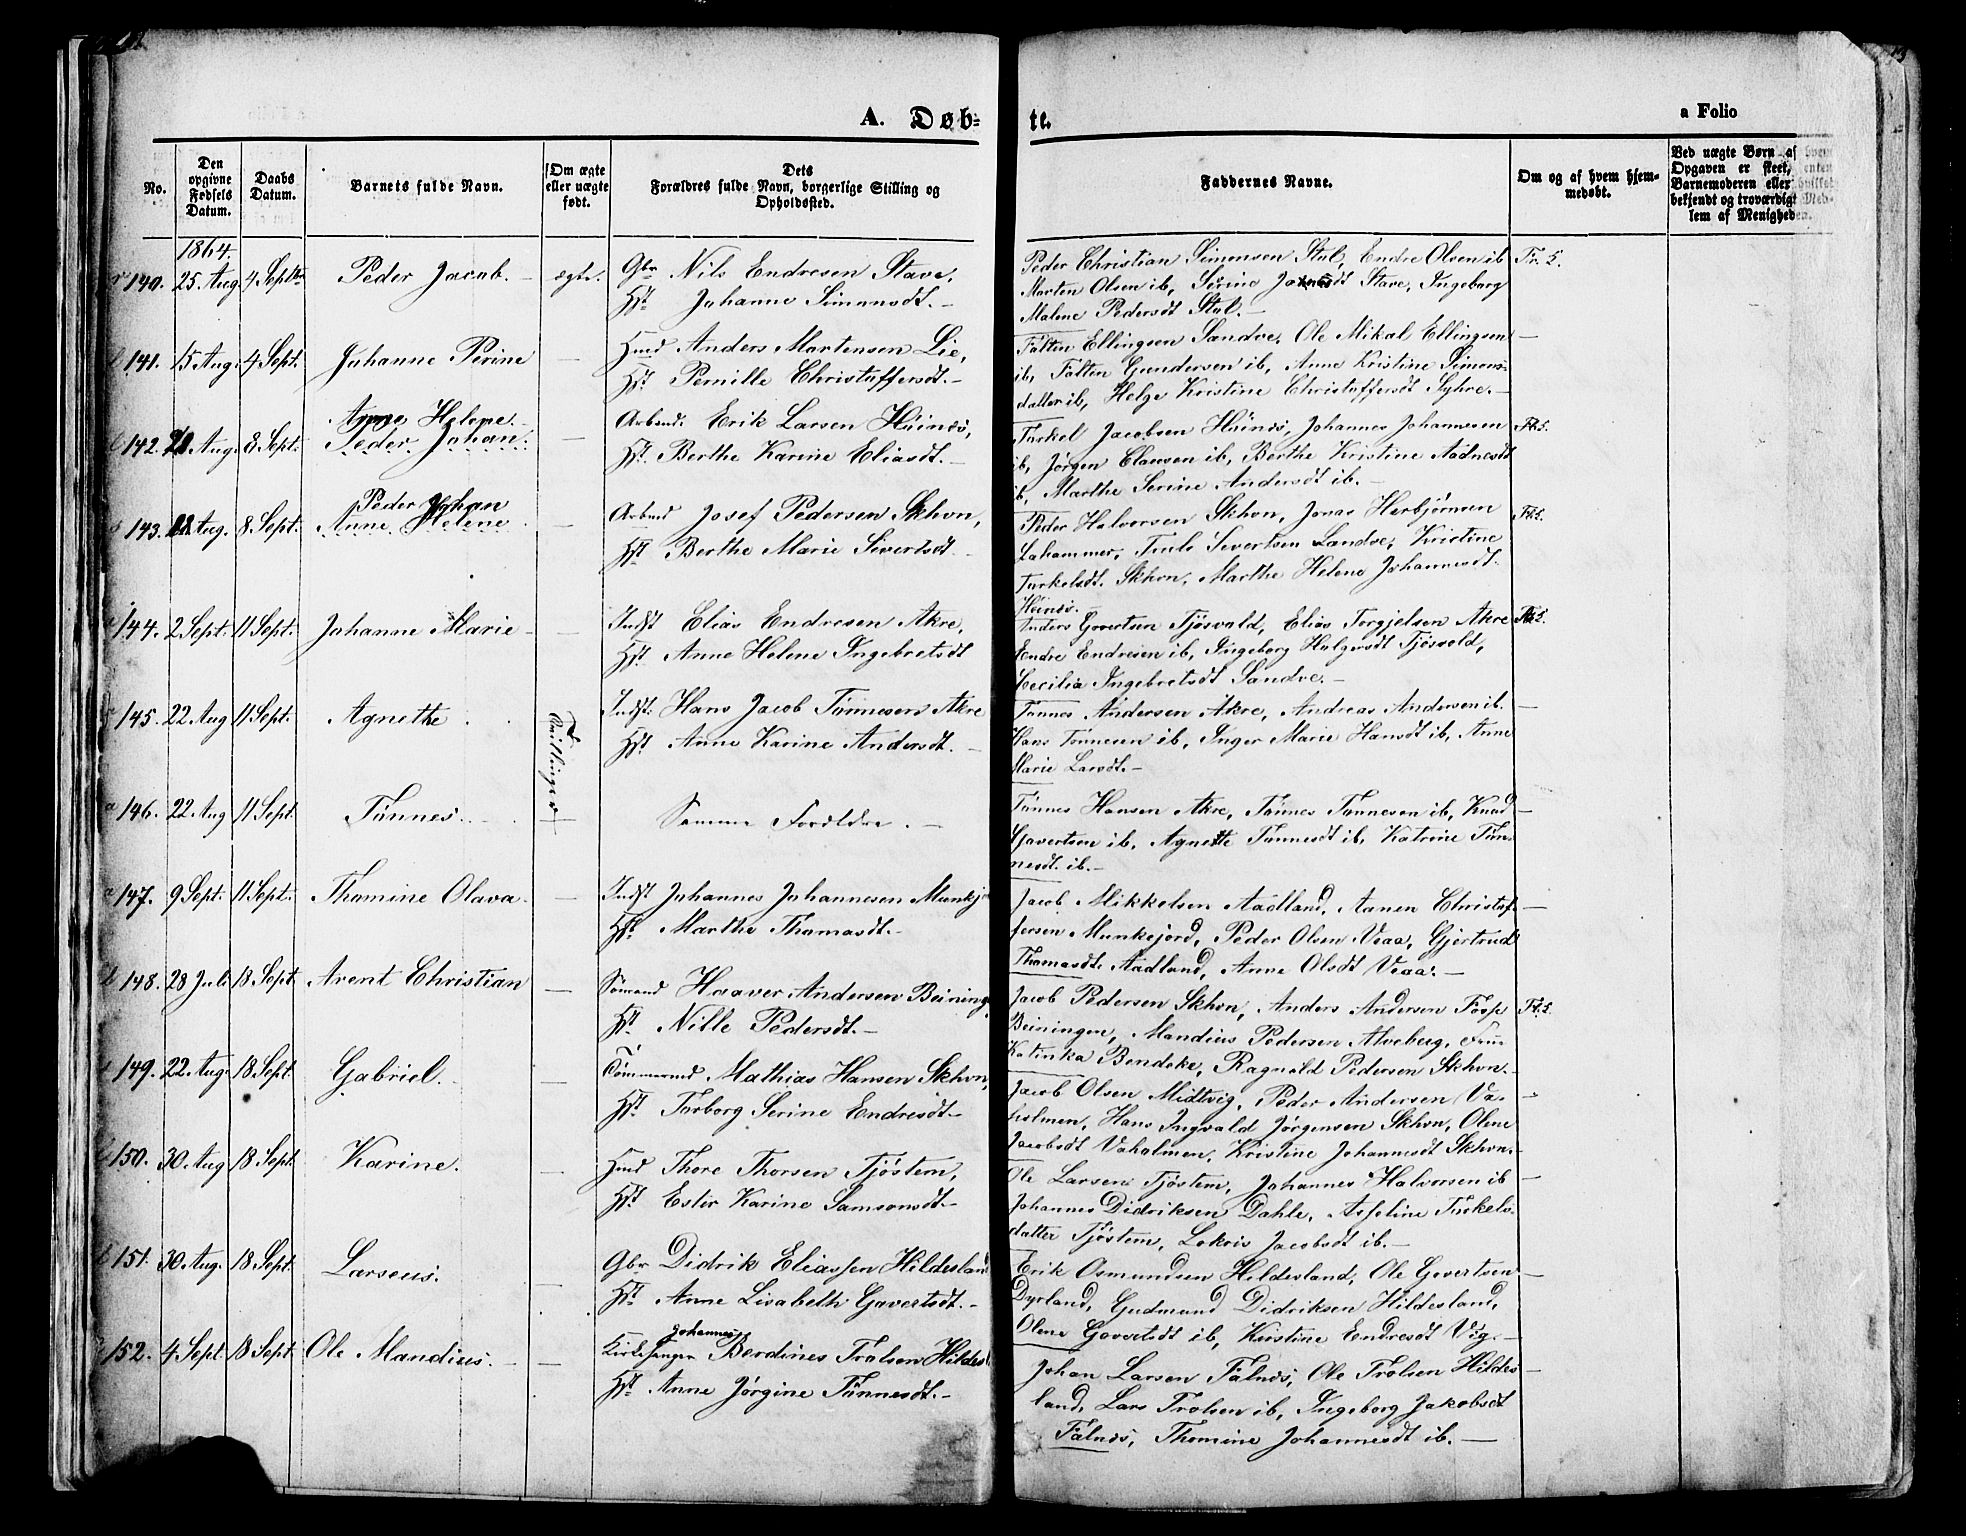 A. Døb-
te.
a Folio
No.
Den opgivne Fødsels Datum.
Daabs Datum.
Barnets fulde Navn.
Om ægte eller uægte født.
Dets Forældres fulde Navn, borgerlige Stilling og Opholdssted.
Faddernes Navne.
Om og af hvem hjemmedøbt.
Ved uægte Børn af
Opgaven er skeet, enten
Barnemoderen eller
bekjendt og troværdigt Med-
lem af Menigheden.
1864.
140. 25 Aug. 4 Septbr Peder Jacob. ægte. Gbr Nils Endresen Stave,
Hst Johanne Simonsdt.
Peder Christian Simonsen Stol, Endre Olsen ib
Morten Olsen ib, Sørine Stave, Ingeborg
Malene Pedersdt Stol.
141. 15 Aug. 4 Sept. Johanne Perine — Hmd Anders Martensen Lie,
Hst. Pernille Christoffersdt.
Falten Ellingsen Sandve, Ole Mikal Ellingsen
ib, Falten Gundersen ib, Anne Kristine Simons-
datter ib, Helge Kristine Christoffersdt Syhre.
Anne Helene.
142. Aug. 8 Sept. Peder Johan. — Arbmd. Erik Larsen Høinæs,
Hst. Berthe Karine Eliasdt.
Torkel Jacobsen Høinæs, Johannes Johannesen
ib, Jørgen Clausen ib, Berthe Kristine Aadnesdt
ib, Marthe Serine Andersdt ib.
Peder Johan
143. Aug. 8 Sept. Anne Helene. — Arbmd Josef Pedersen Skhvn,
Hst Berthe Marie Sivertsdt.
Peder Halvorsen Skhvn, Jonas Herbjørnsen
Lahammer, Truls Severtsen Sandve, Kristine
Torkelsdt. Skhvn, Marthe Helene Johannesdt.
Høinæs.
144. 2 Sept. 11 Sept. Johanne Marie — Indst Elias Endresen Akre,
Hst. Anne Helene Ingebretsdt
Anders Govertsen Tjøsvald, Elias Torgjelsen Akre
Endre Endresen ib, Ingeborg Holgersdt Tjøsvold,
Cecilia Ingebretsdt Sandve.
145. 22 Aug 11 Sept. Agnethe. Tvillinger Indst. Hans Jacob Tønnesen Akre
Hst. Anne Karine Andersdt.
Tønnes Andersen Akre, Andreas Andersen ib.
Hans Tønnesen ib, Inger Marie Hansdt ib, Anne
Marie Larsdt.
146. 22 Aug 11 Sept. Tønnes. Samme Forældre.
Tønnes Hansen Akre, Tønnes Tønnesen ib, Knud
Govertsen ib, Agnethe Tønnesdt ib, Katrine Tøn-
nesdt. ib.
147. 9 Sept. 11 Sept. Thomine Olava. — Indst Johannes Johannesen Munkj
Hst. Marthe Thomasdt.
Jacob Mikkelsen Aadland, Aanen Christof-
fersen Munkejord, Peder Olsen Veaa, Gjertrud
Thomasdt. Aadland, Anne Olsdt Veaa.
148. 28 Juli 18 Sept. Arent Christian — Sømand Haaver Andersen Beining
Hst. Nille Pedersdt.
Jacob Pedersen Skhvn, Anders Andersen
Beiningen, Mandius Pedersen Alveberg, Fru
Katinka Bendeke, Ragnald Pedersen Skhvn.
149. 22 Aug. 18 Sept. Gabriel. — Tømmermd Mathias Hansen Skhvn,
Hst. Torborg Serine Endresdt.
Jacob Olsen Midtvig, Peder Andersen Va-
holmen, Hans Ingvald Jørgensen Skhvn, Oline
Jacobsdt Vaholmen, Kristine Johannesdt Skhvn.
150. 30 Aug 18 Sept. Karine. — Hmd Thore Thorsen Tjøstem,
Hst. Ester Karine Samsonsdt.
Ole Larsen Tjøstem, Johannes Halvorsen ib
Johannes Didriksen Dahle, Asseline Torkels-
datter Tjøstem, Lokris Jacobsdt ib.
151. 30 Aug. 18 Sept. Larseus. — Gbr Didrik Eliassen Hildesland
Hst. Anne Lisabeth Govertsdt.
Erik Osmundsen Hildesland, Ole Govertsen
Dyrland, Gudmund Didriksen Hildesland,
Oline Govertsdt ib, Kirstine Endresdt Vig.
Johannes
152. 4 Sept. 18 Sept. Ole Mandius. — Kirkesanger Berdines Trolsen Hildesl
Hst. Anne Jørgine Tønnesdt.
Johan Larsen Falnæs, Ole Trolsen Hildes-
land, Lars Trolsen ib, Ingeborg Jakobsdt
Falnæs, Thomine Johannesdt ib.